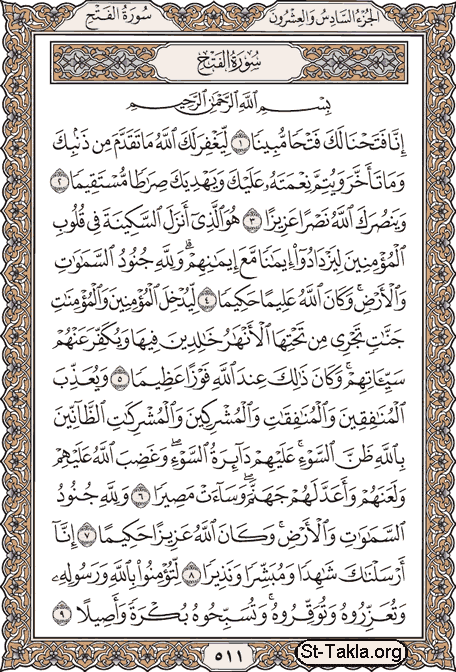 سُورَةُ الفَتْحِ
الجُزْءُ السَّادِسُ وَالعِشْرُونَ
سُورَةُ الفَتْحِ
بِسْمِ ٱللَّهِ ٱلرَّحْمَٰنِ ٱلرَّحِيمِ
إِنَّا فَتَحْنَا لَكَ فَتْحًا مُّبِينًا ١ لِّيَغْفِرَ لَكَ ٱللَّهُ مَا تَقَدَّمَ مِن ذَنۢبِكَ
وَمَا تَأَخَّرَ وَيُتِمَّ نِعْمَتَهُۥ عَلَيْكَ وَيَهْدِيَكَ صِرَٰطًا مُّسْتَقِيمًا ٢
وَيَنصُرَكَ ٱللَّهُ نَصْرًا عَزِيزًا ٣ هُوَ ٱلَّذِىٓ أَنزَلَ ٱلسَّكِينَةَ فِى قُلُوبِ
ٱلْمُؤْمِنِينَ لِيَزْدَادُوٓا۟ إِيمَٰنًا مَّعَ إِيمَٰنِهِمْ ۗ وَلِلَّهِ جُنُودُ ٱلسَّمَٰوَٰتِ
وَٱلْأَرْضِ ۚ وَكَانَ ٱللَّهُ عَلِيمًا حَكِيمًا ٤ لِّيُدْخِلَ ٱلْمُؤْمِنِينَ وَٱلْمُؤْمِنَٰتِ
جَنَّٰتٍ تَجْرِى مِن تَحْتِهَا ٱلْأَنْهَٰرُ خَٰلِدِينَ فِيهَا وَيُكَفِّرَ عَنْهُمْ
سَيِّـَٔاتِهِمْ ۚ وَكَانَ ذَٰلِكَ عِندَ ٱللَّهِ فَوْزًا عَظِيمًا ٥ وَيُعَذِّبَ
ٱلْمُنَٰفِقِينَ وَٱلْمُنَٰفِقَٰتِ وَٱلْمُشْرِكِينَ وَٱلْمُشْرِكَٰتِ ٱلظَّآنِّينَ
بِٱللَّهِ ظَنَّ ٱلسَّوْءِ ۚ عَلَيْهِمْ دَآئِرَةُ ٱلسَّوْءِ ۖ وَغَضِبَ ٱللَّهُ عَلَيْهِمْ
وَلَعَنَهُمْ وَأَعَدَّ لَهُمْ جَهَنَّمَ ۖ وَسَآءَتْ مَصِيرًا ٦ وَلِلَّهِ جُنُودُ
ٱلسَّمَٰوَٰتِ وَٱلْأَرْضِ ۚ وَكَانَ ٱللَّهُ عَزِيزًا حَكِيمًا ٧ إِنَّآ
أَرْسَلْنَٰكَ شَٰهِدًا وَمُبَشِّرًا وَنَذِيرًا ٨ لِّتُؤْمِنُوا۟ بِٱللَّهِ وَرَسُولِهِۦ
وَتُعَزِّرُوهُ وَتُوَقِّرُوهُ ۚ وَتُسَبِّحُوهُ بُكْرَةً وَأَصِيلًا ٩
٥١١
St-Takla.org